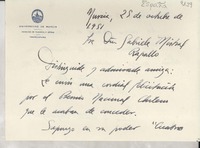 UNIVERSIDAD DE MURCIA
Murcia, 25 de octubre de
1951
Sra. Dña. Gabriela Mistral
Rapallo
Distinguida y admirada amiga:
Le envío una cordial felicitación
por el Premio Nacional chileno
que le acaban de conceder.
Supongo en su poder "Cuatro